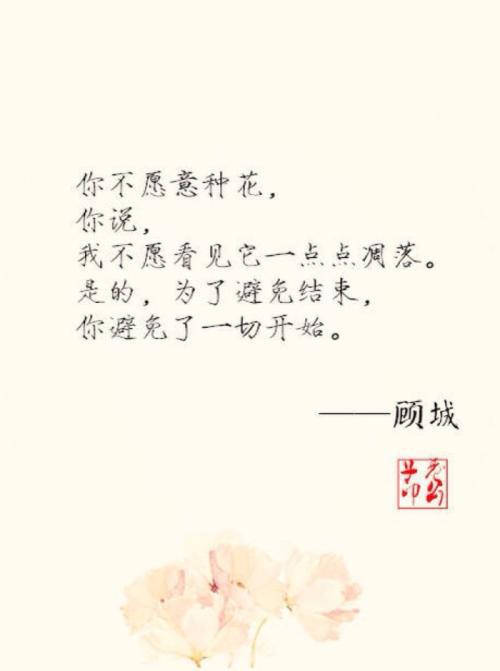 你不愿意种花，
你说，
我不愿看见它一点点凋落。
是的，为了避免结束，
你避免了一切开始。
——顾城